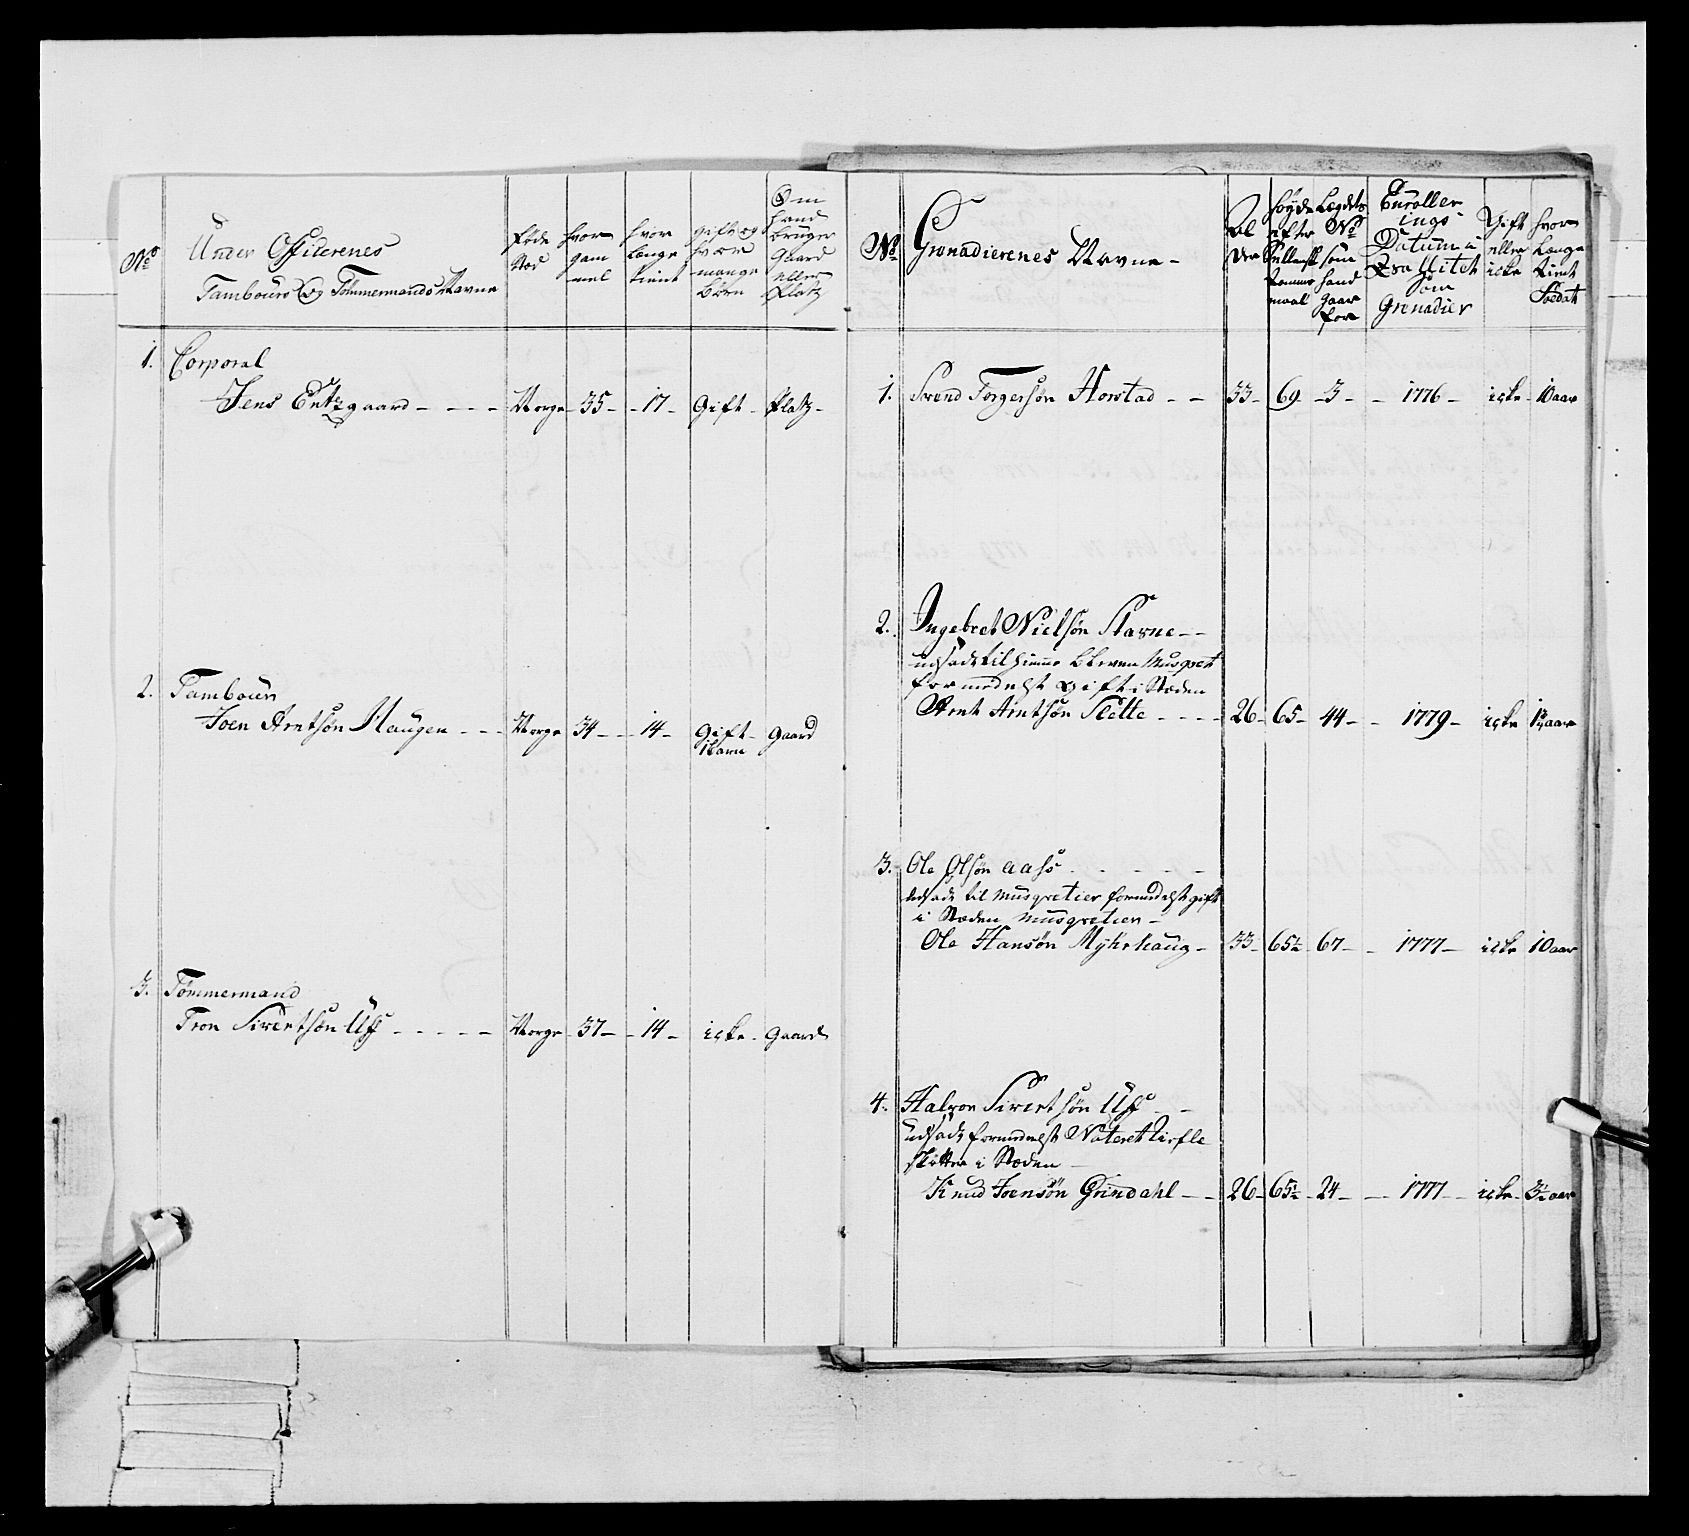 No
Under Officerenes
Tambours og Tømmermands Navne
føde
Stæd
hvor
gam
mel
hvor
længe
tient
gift og
hvor
mange
Børn
Om
hand
bruger
Gaard
eller
Platz
1. Corporal
Jens Entzgaard - - - - Norge - 35 - - 17 - Gift - Platz -
2. Tambour
Joen Arntsøn Haugen - - - Norge - 34 - - 14 - Gift - Gaard
1 Barn
3. Tømmermand
Tron Sivertsøn Uf - - - - - Norge - 37 - - 14 - icke - Gaard
No
Grenadierenes Navne -
Al
der
Høyde
efter
Lægdets
No
som
hand
gaar
for
Enroller
ings
Datum
som
Grenadier
Gift
eller
icke
hvor
Længe
tient
Soldat
1. Svend Torgersøn Horstad - - 33 - 69 - 3 - - 1776 - icke - 10 aar
2. Ingebret Nielsøn Stavne - -
udsadt til hiemme bleven Musqvet
formedelst gift i Stæden
Arnt Arntsøn Slette - - - - 26 - 65 - 44 - - 1779 - icke aar
3. Ole Olsøn Aass - - - - -
udsadt til Musqvetier formedelst gift
i Stæden Musqvetier -
Ole Hansøn Myhrhaug - 33 - 65½ - 67 - - 1777 - icke 10 aar
4. Halvor Sivertsøn Uf - -
udsadt formedelst Nateret
skøtter i Stæden -
Knud Joensøn Grindahl - - 26 - 65½ - 24 - - 1777 - icke - 3½ aar